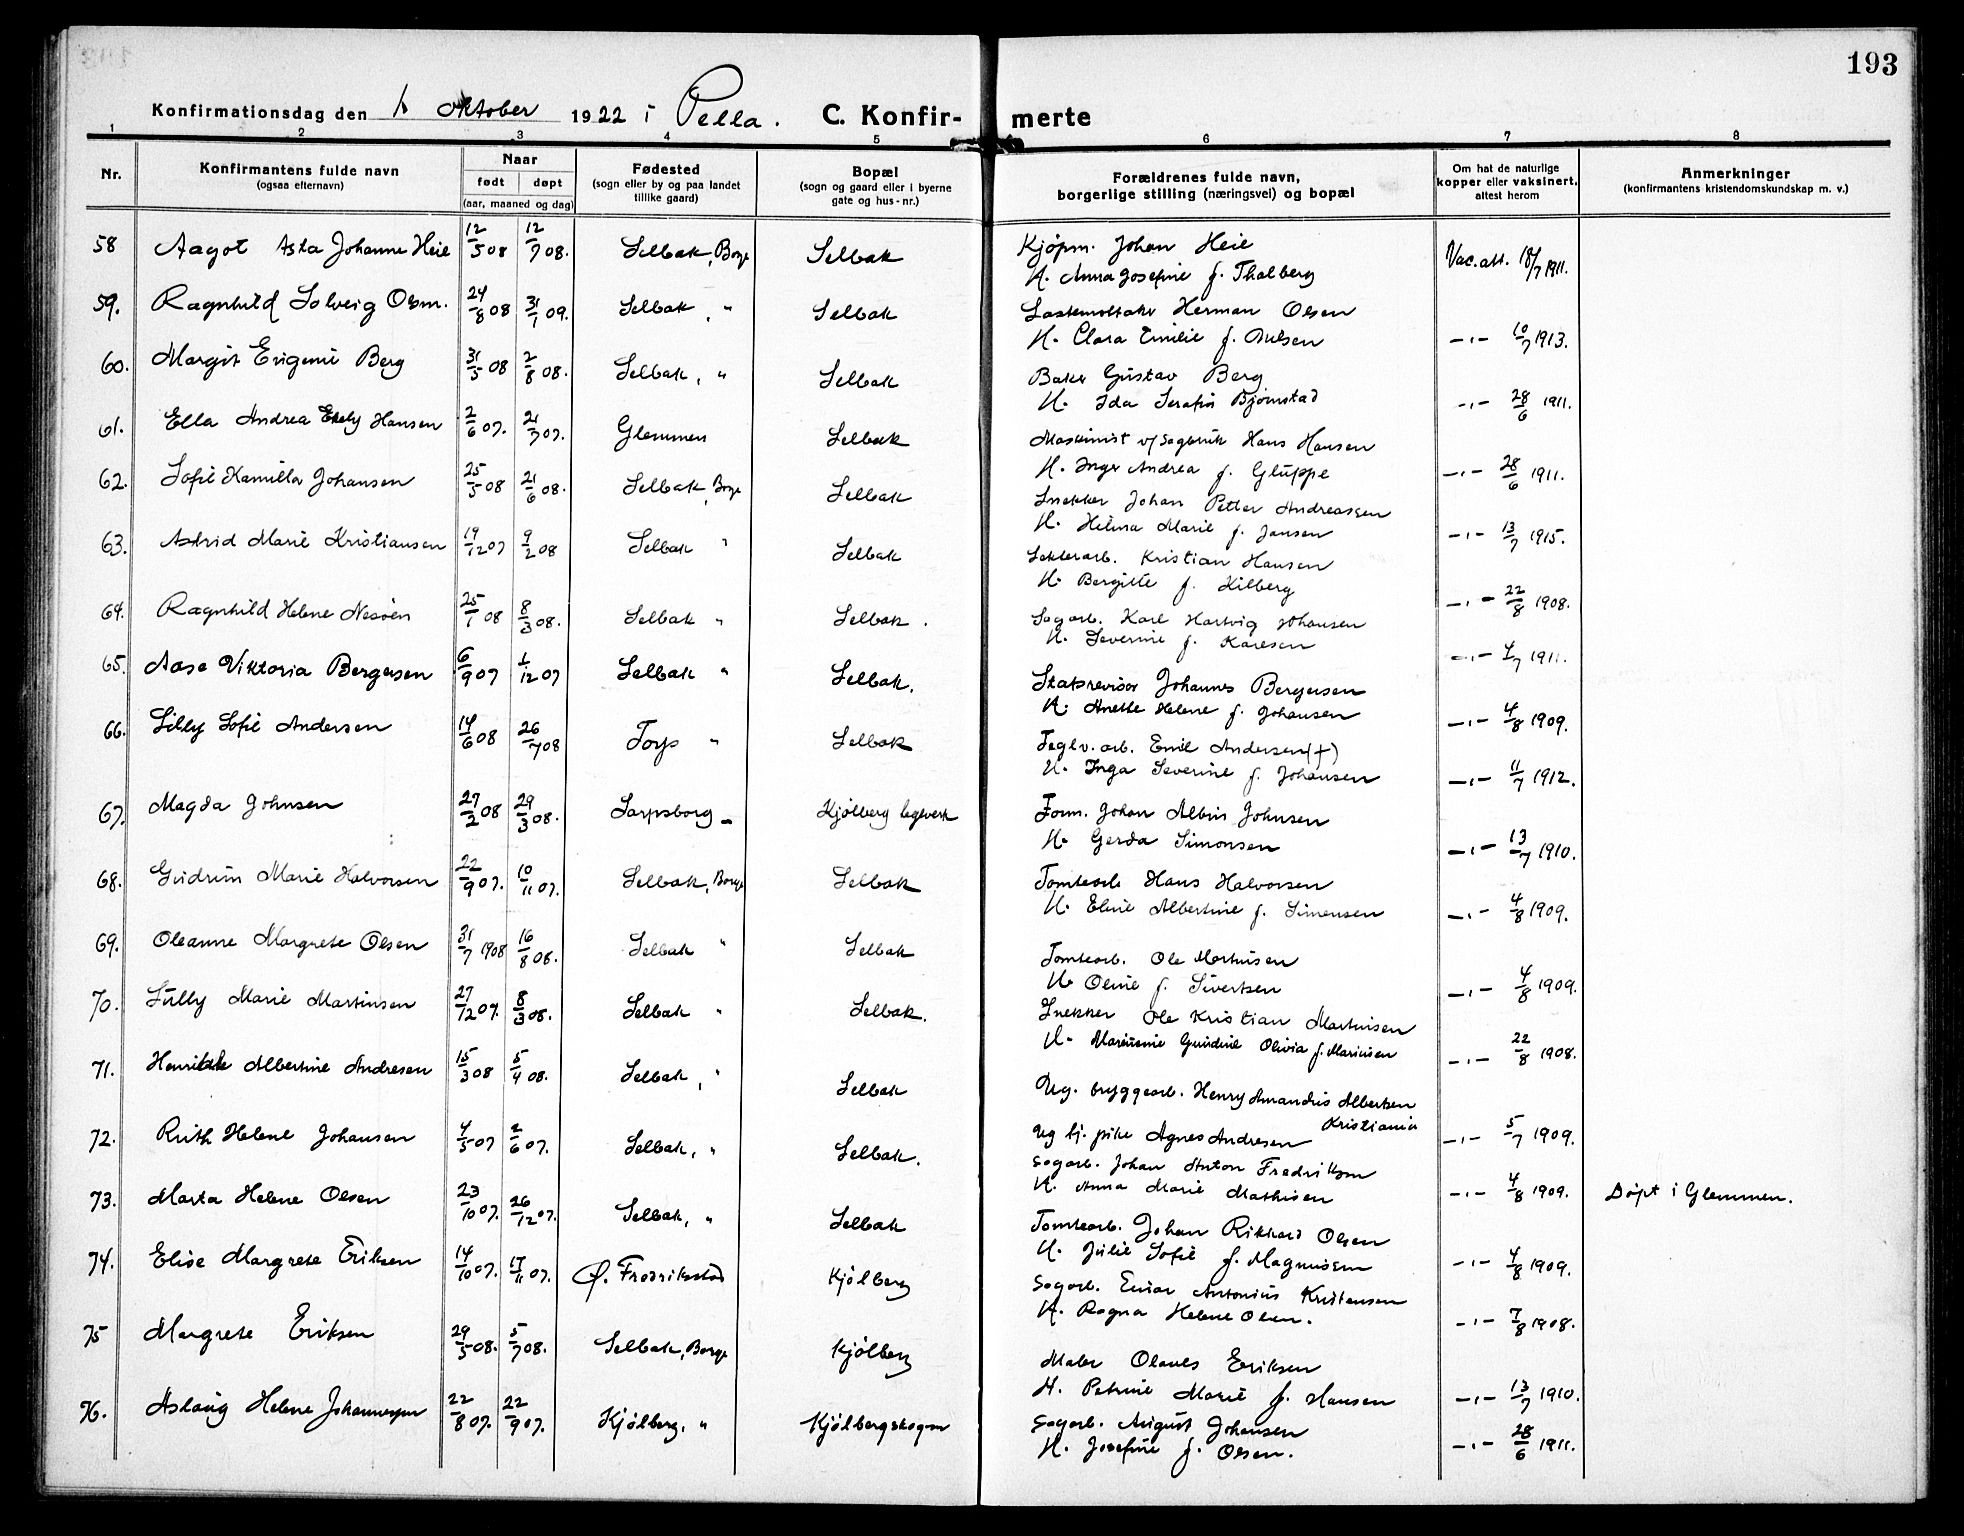 193
Konfirmationsdag den 1 oktober 1922 i Pella. C. Konfir- merte
1 2 3 4 5 6 7 8
Nr. Konfirmantens fulde navn (ogsaa efternavn) Naar født døpt (aar, maaned og dag) Fødested (sogn eller by og paa landet tillike gaard) Bopæl (sogn og gaard eller i byerne gate og hus-nr.) Forældrenes fulde navn, borgerlige stilling (næringsvei) og bopæl Om hat de naturlige kopper eller vaksinert, attest herom Anmerkninger (konfirmantens kristendomskundskap m. v.)
58 Aagot Asta Johanne Heie 12/5 08 12/7 08. Selbak, Borge Selbak Kjøpm. Johan Heie Vac.att. 18/7 1911.
H. Anna Josefine f. Thalberg
59. Ragnhild Solveig Olsen. 24/8 08 31/1 09. Selbak, " Selbak Lastemottaker Herman Olsen
H. Clara Emilie f. Nilsen -"- 10/7 1913.
60. Margit Eugenie Berg 31/5 08 2/8 08. Selbak, " Selbak Baker Gustav Berg
H. Ida Serafin Bjørnstad -"- 28/6 1911.
61. Ella Andrea Hansen 2/6 07. 21/7 07. Glemmen Selbak Maskinist v/ Sagbruk Hans Hansen
H. Inger Andrea f. Gluppe -"- 28/6 1911.
62. Sofie Kamilla Johansen 25/5 08 21/6 08. Selbak, Borge Selbak Snekker Johan Petter Andreassen
H. Hilma Marie f. Jansen -"- 13/7 1915.
63. Astrid Marie Kristiansen 19/12 07 9/2 08 Selbak " Selbak Kristian Hansen
H. Bergitte f. Kilberg -"- 22/8 1908.
64. Ragnhild Helene Nesøen 25/1 08 8/3 08. Selbak " Selbak. Sagarb. Karl Hartvig Johansen
H. Severine f. Karlsen -"- 4/7 1911.
65. Aase Viktoria Bergersen 6/9 07 1/12 07 Selbak " Selbak. Statsrevisor Johannes Bergersen
H. Anette Helene f. Johansen -"- 4/8 1909.
66. Lilly Sofie Andersen 14/6 08 26/7 08 Torp " Selbak Teglv. arb. Emil Andersen (†)
H. Inga Severine f. Johansen -"- 11/7 1912.
67. Magda Johnsen 27/2 08 29/3 08. Sarpsborg Kjølberg teglverk Form. Johan Albin Johnsen
H. Gerda Simonsen -"- 13/7 1910.
68. Gudrun Marie Halvorsen 22/9 07. 10/11 07. Selbak, Borge Selbak Tomtearb. Hans Halvorsen
H. Eline Albertine f. Simensen -"- 4/8 1909.
69. Oleanne Margrete Olsen 31/7 1908 16/8 08. Selbak " Selbak Tomtearb. Ole Martinsen
H. Oline f. Sivertsen -"- 4/8 1909.
70. Lully Marie Martinsen 27/12 07. 8/3 08. Selbak " Selbak. Snekker Ole Kristian Martinsen
H. Olivia f. Marinsen -"- 22/8 1908.
71. Henrikke Albertine Andresen 15/3 08 5/4 08. Selbak, " Selbak Ug. bryggearb. Henry Amandus Albertsen
Kristiania
ug tj. pike Agnes Andresen -"- 5/7 1909.
72. Ruth Helene Johansen 4/5 07 2/6 07. Selbak, " Selbak. Sagarb. Johan Anton Fredriksen
H. Anna Marie Mathisen -"- 4/8 1909. Døpt i Glemmen.
73. Marta Helene Olsen 23/10 07. 26/12 07. Selbak, " Selbak Tomtearb. Johan Rikhard Olsen
H. Julie Sofie f. Magnussen -"- 4/8 1909.
74. Elise Margrete Eriksen 14/10 07. 17/11 07. Ø. Fredrikstad Kjølberg Sagarb. Einar Antonius Kristensen
H. Ragna Helene Olsen. -"- 7/8 1908.
75 Margrete Eriksen 29/5 08. 5/7 08. Selbak, Borge Kjølberg Maler Olaves Eriksen
H. Petrine Marie f. Hansen -"- 13/7 1910.
76. Aslaug Helene Johannessen 22/8 07. 22/9 07. Kjølberg, " Kjølbergskogen Sagarb. August Johansen
H. Josefine f. Olsen. -"- 28/6 1911.